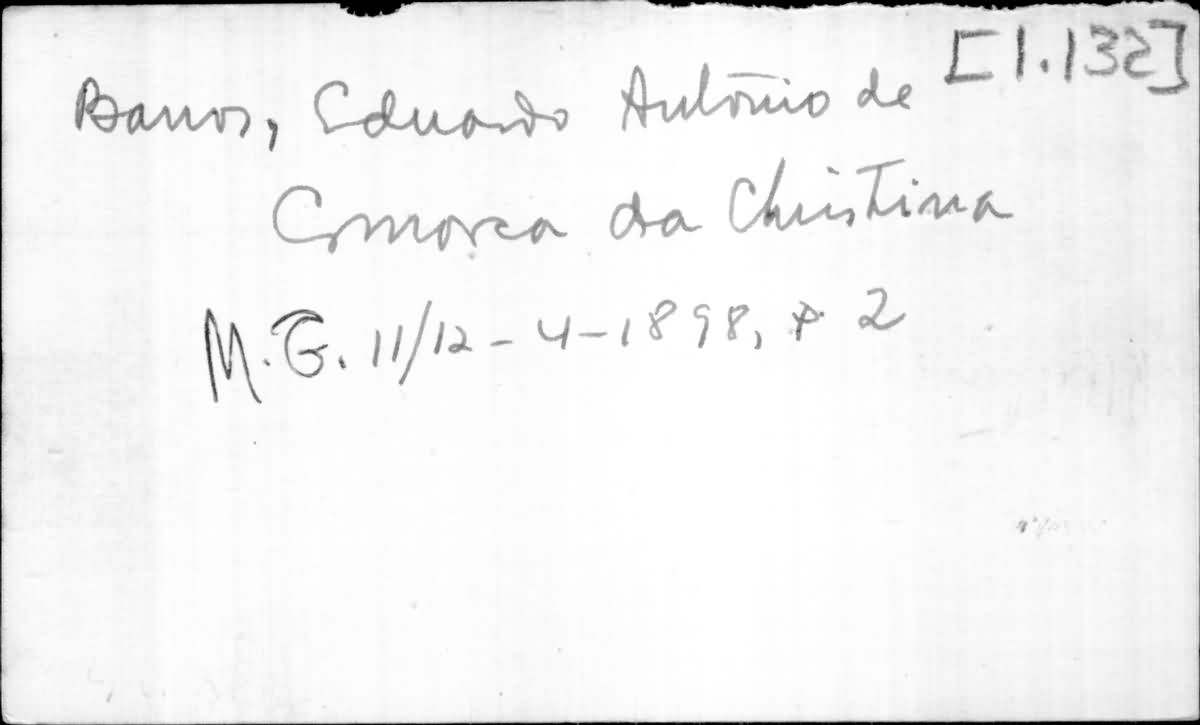 [1.132]
Barros, Eduardo Antônio de
Comarca da Christina
M.G. 11/12-4-1898, p 2